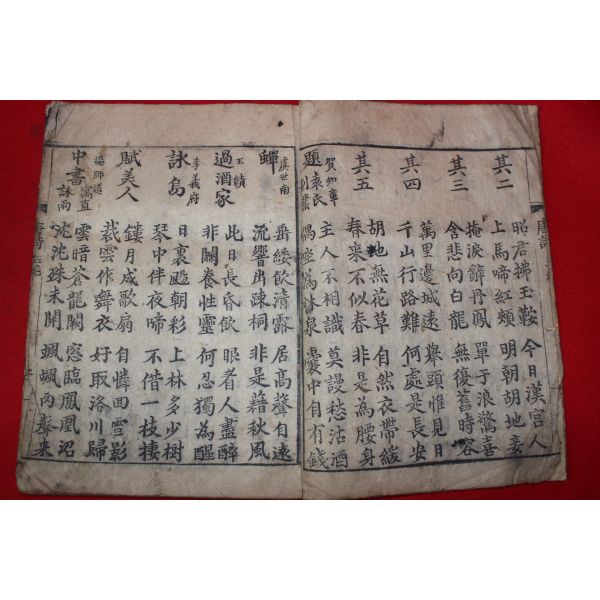 其二
昭君拂玉鞍 今日漢宮人
上馬啼紅頰 明朝胡地妾
其三
掩淚辭丹鳳 單于浪驚喜
含悲向白龍 無復舊時容
其四
萬里邊城遠 擧頭惟見日
千山行路難 何處是長安
其五
胡地無花草 自然衣帶緩
春來不似春 非是為腰身
賀知章
題袁氏別業
主人不相識 莫謾愁沽酒
偶坐為林泉 囊中自有錢
虞世南
蟬
垂緌飮清露 居高聲自遠
流響出疎桐 非是藉秋風
王績
過酒家
此日長昏飮 眼看人盡醉
非關養性靈 何忍獨為醒
李義府
詠烏
日裏颺朝彩 上林多少樹
琴中伴夜啼 不借一枝棲
賦美人
鏤月成歌扇 自憐回雪影
裁雲作舞衣 好取洛川歸
楊師道
中書寓直詠雨
雲暗蒼龍闕 窓臨鳳凰沼
沈沈殊未開 颯颯雨聲來
唐詩